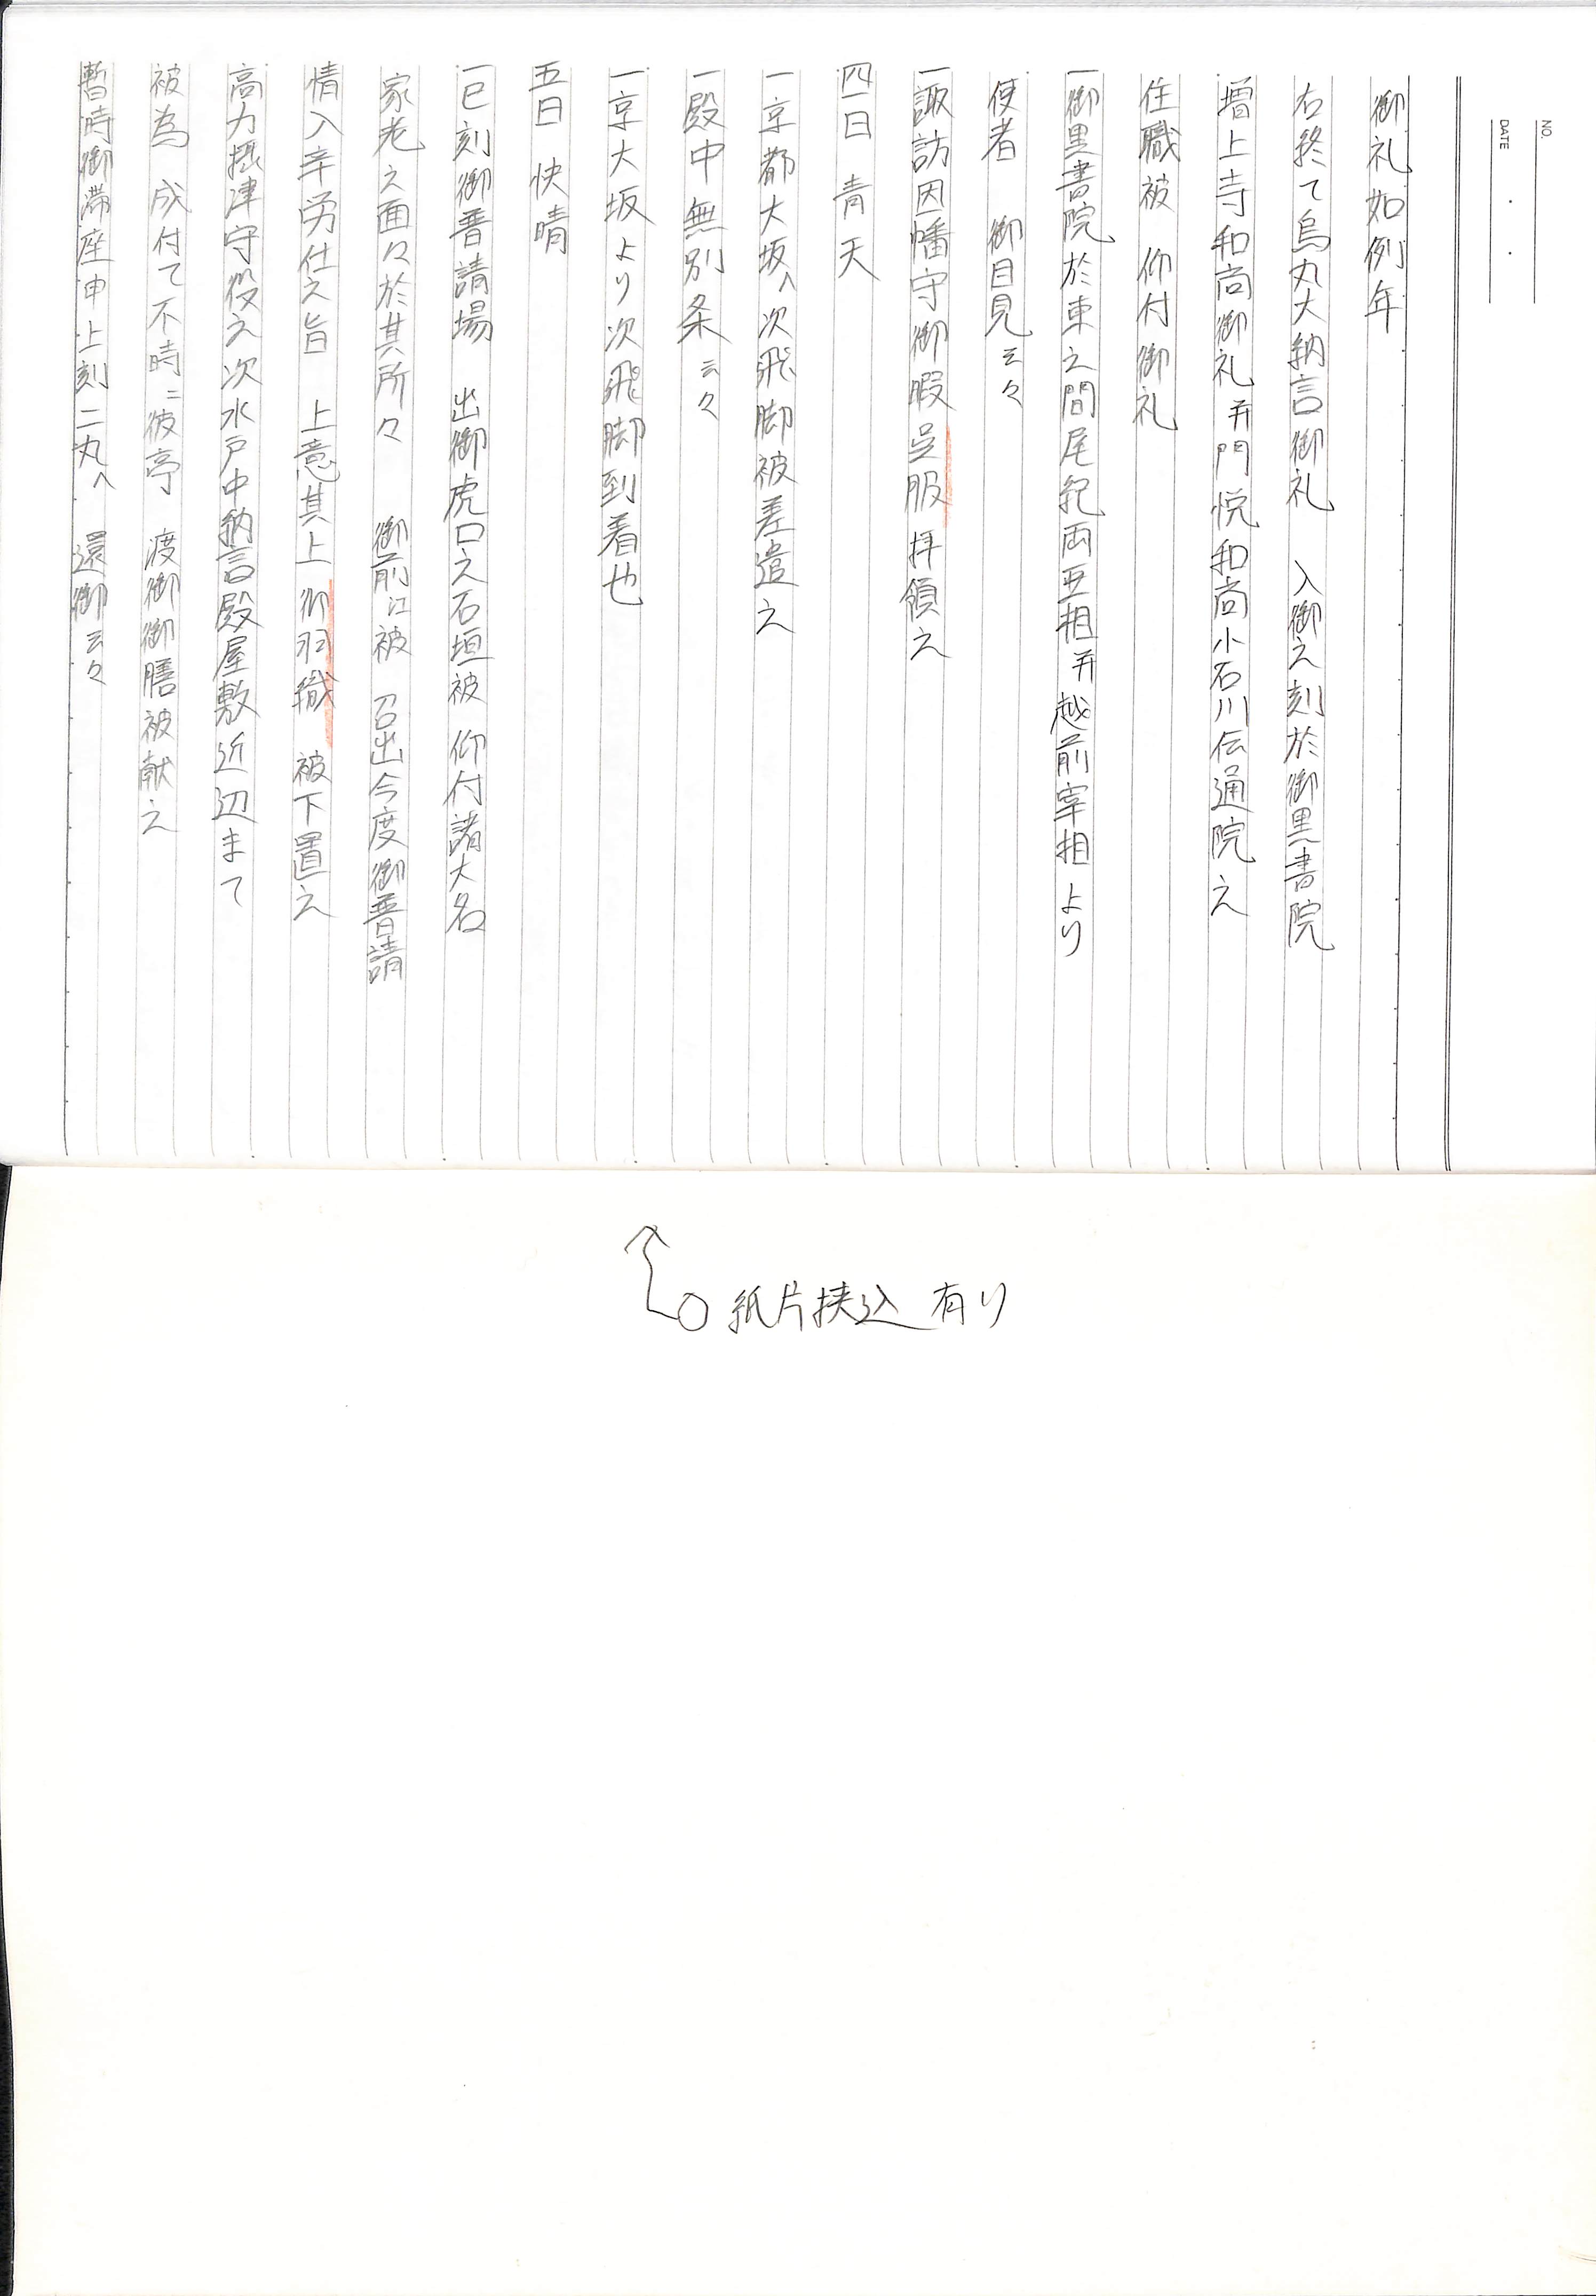 NO.
DATE
御礼如例年
右終て烏丸大納言御礼　入御之刻於御黒書院
増上寺和尚御礼并門悦和尚小石川伝通院え
住職被　仰付御礼
一御黒書院於東之間尾紀両亜相并越前宰相より
使者　御目見云々
一諏訪因幡守御暇呉服拝領之
四日　青天
一京都大坂へ次飛脚被差遣之
一殿中無別条云々
一京大坂より次飛脚到着也
五日　快晴
一巳刻御普請場　出御虎口之石垣被　仰付諸大名
家老之面々於其所々　御前江被　召出今度御普請
情入辛労仕之旨　上意其上御羽織　被下置之
高力摂津守役之次水戸中納言殿屋敷近辺まて
被為　成付て不時ニ彼亭　渡御御膳被献之
暫時御滞座申上刻二丸へ　還御云々
○紙片挟込有り